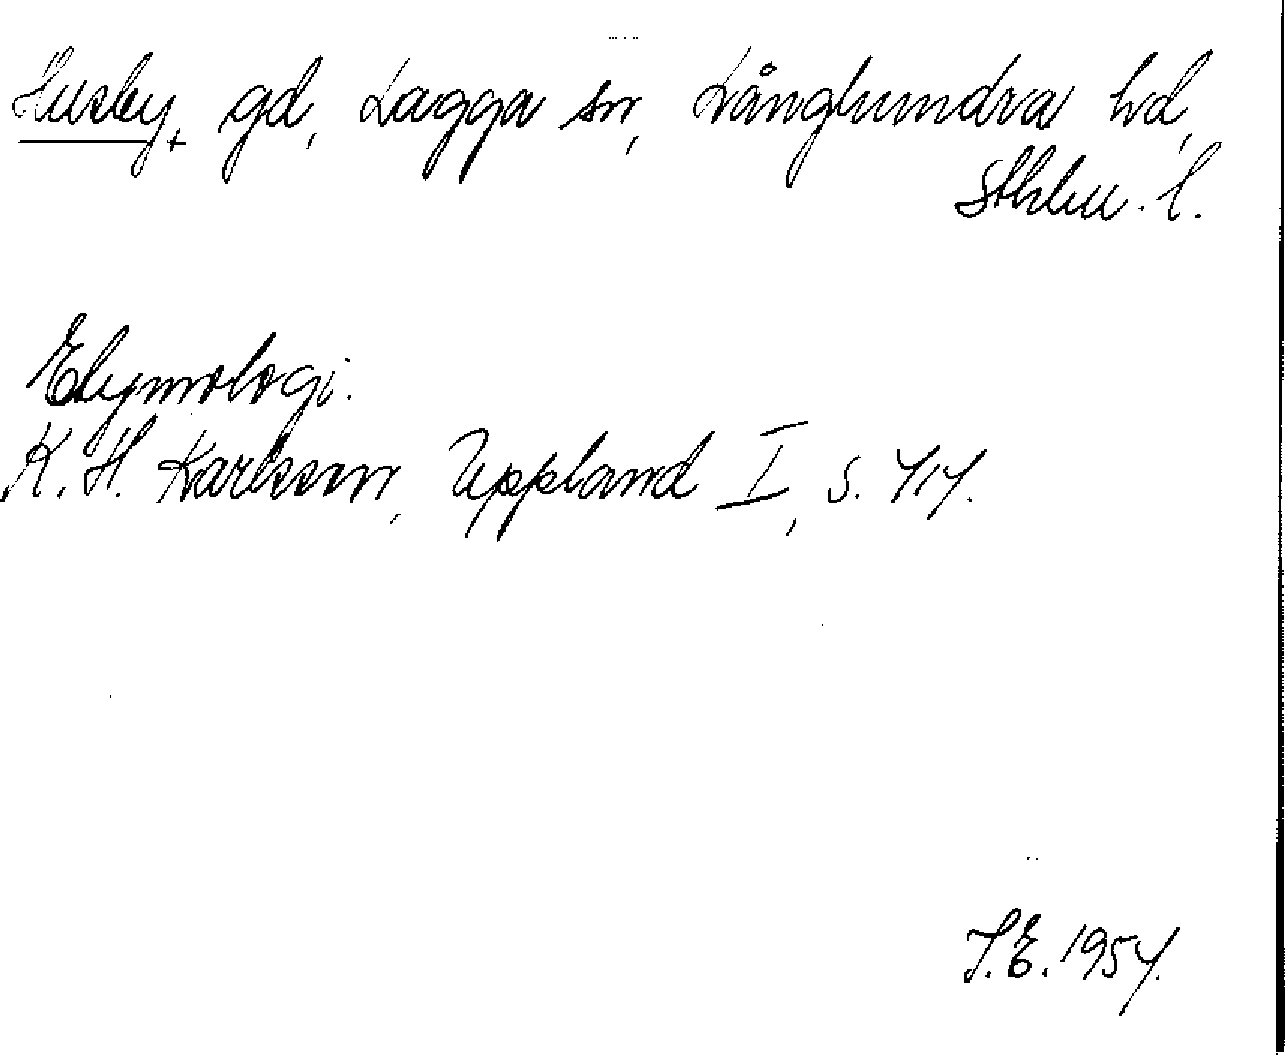 Husby, gd, Lagga sn, Långhundra hd,
Sthlm. l.
Etymologi.
K. H. Karlsson, Uppland I, s. 414.
S.E. 1954.